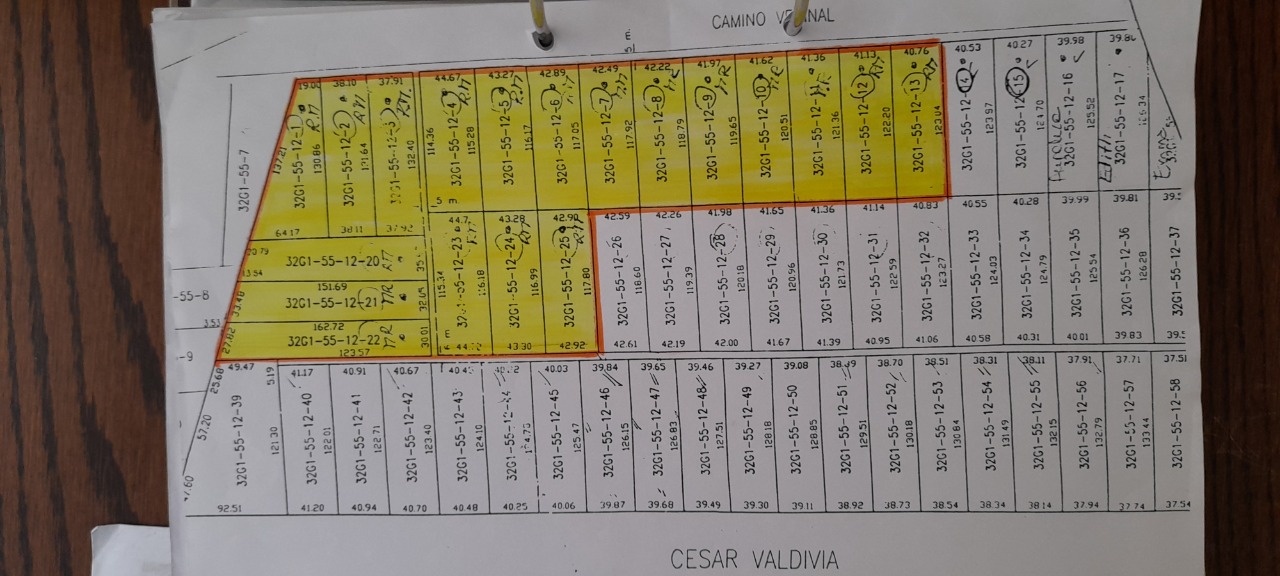 CAMINO
E
19.00 38.10 37.91 44.67 43.27 42.89 42.49 42.22 41.97 41.62 41.36 41.13 40.76 40.53 40.27 39.98 39.86
32G1-55-7
137.21
32G1-55-12-1
130.86
RM
32G1-55-12-2
121.64
RM
32G1-55-12-3
132.40
RM
114.36
32G1-55-12-4
115.28
RM
32G1-55-12-5
116.17
RM
32G1-55-12-6
117.05
32G1-55-12-7
117.92
RM
32G1-55-12-8
118.79
MR
32G1-55-12-9
119.65
MR
32G1-55-12-10
120.51
MR
32G1-55-12-11
121.36
32G1-55-12-12
122.20
RM
32G1-55-12-13
123.04
RM
32G1-55-12-14
123.87
32G1-55-12-15
124.70
32G1-55-12-16
125.52
32G1-55-12-17
126.34
64.17 38.11 37.92
44.7 43.28 42.90 42.59 42.26 41.98 41.65 41.36 41.14 40.83 40.55 40.28 39.99 39.81
20.79
13.54
32G1-55-12-20
RM
151.69
33.48
32G1-55-12-21
MR
32.09
162.72
27.82
32G1-55-12-22
MR
30.01
123.57
-55-8
3.53
-9
115.34
32G1-55-12-23
116.18
RM
32G1-55-12-24
116.99
RM
32G1-55-12-25
117.80
RM
32G1-55-12-26
118.60
32G1-55-12-27
119.39
32G1-55-12-28
120.18
32G1-55-12-29
120.96
32G1-55-12-30
121.73
32G1-55-12-31
122.59
32G1-55-12-32
123.27
32G1-55-12-33
124.03
32G1-55-12-34
124.79
32G1-55-12-35
125.54
32G1-55-12-36
126.28
32G1-55-12-37
43.30 42.92 42.61 42.19 42.00 41.67 41.39 40.95 41.06 40.58 40.31 40.01 39.83
49.47 41.17 40.91 40.67 40.03 39.84 39.65 39.46 39.27 39.08 38.89 38.70 38.51 38.31 38.11 37.91 37.71 37.51
25.68
5.19
57.20
32G1-55-12-39
121.30
32G1-55-12-40
122.01
32G1-55-12-41
122.71
32G1-55-12-42
123.40
32G1-55-12-43
124.10
32G1-55-12-44
32G1-55-12-45
125.47
32G1-55-12-46
126.15
32G1-55-12-47
126.83
32G1-55-12-48
127.51
32G1-55-12-49
128.18
32G1-55-12-50
128.85
32G1-55-12-51
129.51
32G1-55-12-52
130.18
32G1-55-12-53
130.84
32G1-55-12-54
131.49
32G1-55-12-55
132.15
32G1-55-12-56
132.79
32G1-55-12-57
133.44
32G1-55-12-58
92.51 41.20 40.94 40.70 40.48 40.25 40.06 39.87 39.68 39.49 39.30 39.11 38.92 38.73 38.54 38.34 38.14 37.94 37.74 37.54
CESAR VALDIVIA